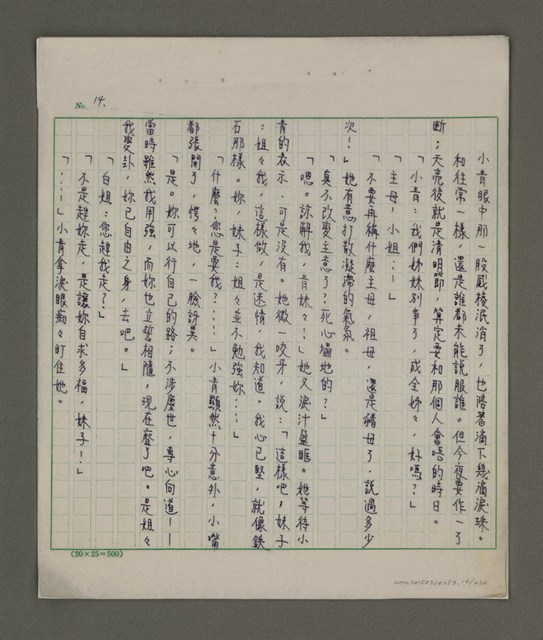 No. 14.
小青眼中那一股戚棲泯消了，也陪著滴下幾滴淚珠。
和往常一樣，還是誰都未能說服誰。但今夜要作一了
斷；天亮後就是清明節，算定要和那個人會唔的時日。
「小青：我們姊妹別爭了，成全姊々，好嗎？」
「主母，小姐…！」
「不要再稱什麼主母，祖母，還是豬母了，說過多少
次！」她有意打散凝滯的氣氛。
「真不改變主意了？死心塌地的？」
「嗯。諒解我，青妹々！」她又淚汁盈眶。她等待小
青的表示，可是沒有。她微一咬牙，說：「這樣吧，妹子
：姐々我，這樣做，是迷情，我知道。我心已堅，就像鉄
石那樣。妳，妹子：姐々並不勉強妳……」
「什麼？您是要我？……」小青顯然十分意外，小嘴
都張開了，愕々地，一臉訝異。
「是。妳可以行自己的路；不涉塵世，專心向道——
當時雖然我用強，而妳也立誓相隨，現在廢了吧。是姐々
我變卦，妳已自由之身，去吧。」
「白姐：您趕我走？」
「不是趕妳走，是讓妳自求多福，妹子！」
「……」小青拿淚眼痴々盯住她。
(20×25=500)